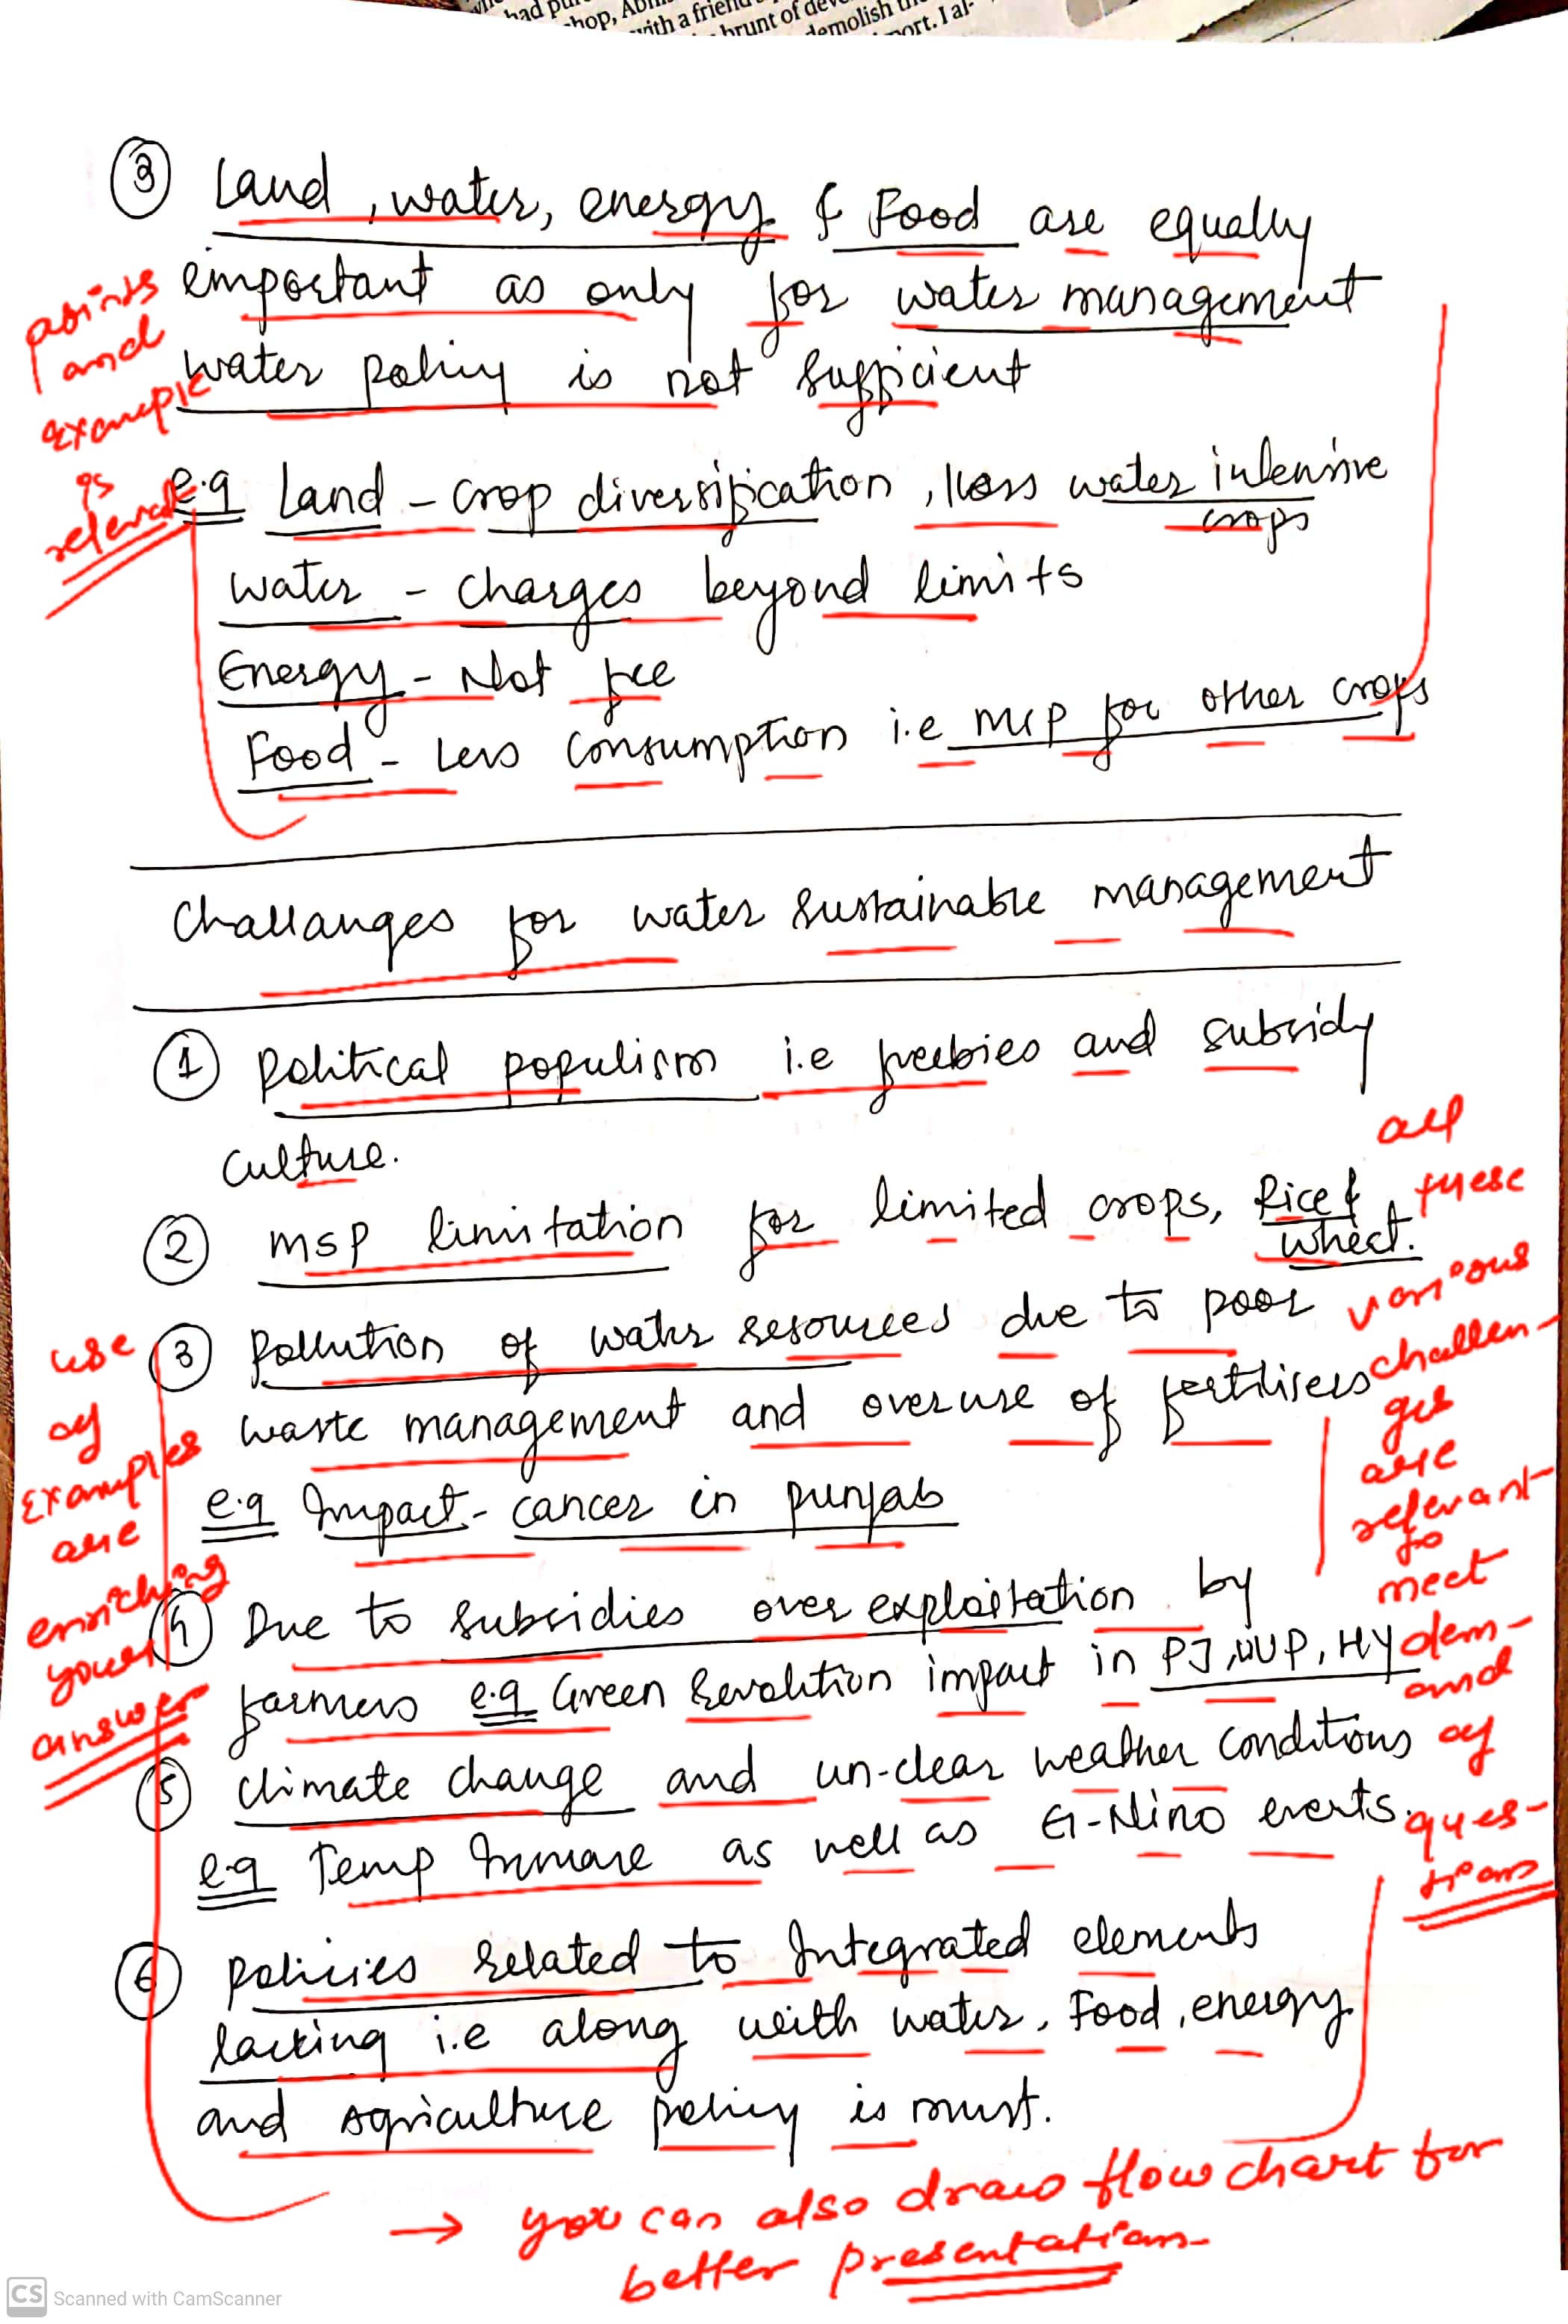 had pu
hop, Abhi
with a friend
brunt of dev
demolish th
port. I al-
③ Land, water, energy & Food are equally
important as only for water management
water policy is not sufficient
points
and
example
is
relevant
e.g Land - crop diversification, less water intensive
crops
water - charges beyond limits
Energy - Not free
Food - Less consumption i.e MSP for other crops
Challanges for water sustainable management
① Political populism i.e freebies and subsidy
culture.
② MSP limitation for limited crops, Rice &
wheat.
③ Pollution of water resources due to poor
waste management and overuse of fertilisers
e.g Impact - cancer in punjab
④ Due to subsidies over exploitation by
farmers e.g Green Revolution impact in PJ, WUP, HY
⑤ climate change and un-clear weather conditions
e.g Temp Increase as well as El-Nino events.
⑥ policies related to Integrated elements
lacking i.e along with water, Food, energy
and agriculture policy is must.
use
of
examples
are
enriching
your
answer
all
these
various
challen-
ges
are
relevant
to
meet
dem-
and
of
ques-
tion
→ you can also draw flow chart for
better presentation
CS Scanned with CamScanner